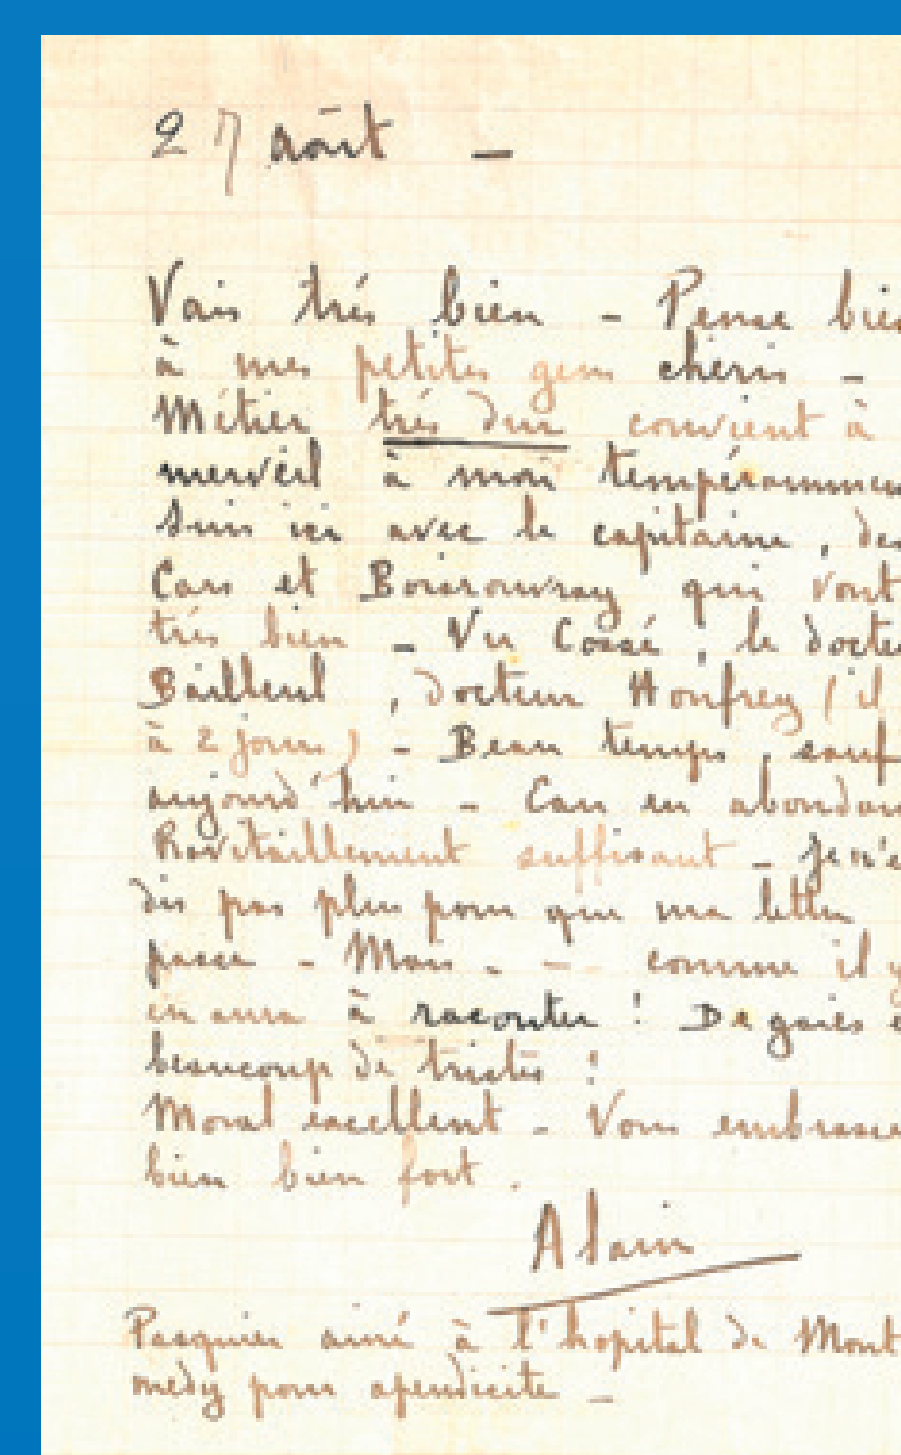 27 août -
Vais trés bien - Pense bien
à mes petites gens chéris -
Métier trés dur convient à
merveil à mon tempéramment
Suis ici avec le capitaine, des
Cars et Boisrouvray qui vont
trés bien - Vu Cossé, le docteur
Bailleul, docteur Honfrey (il
à 2 jours) - Beau temps, sauf
aujourd'hui - Eau en abondan
Ravitaillement suffisant - Je n'e
dis pas plus pour que ma lettre
passe - Mais - - comme il y
en aura à raconter ! De gaies e
beaucoup de tristes !
Moral excellent - Vous embrasse
bien bien fort.
Alain
Pasquier ainé à l'hopital de Mont
médy pour apendicite -